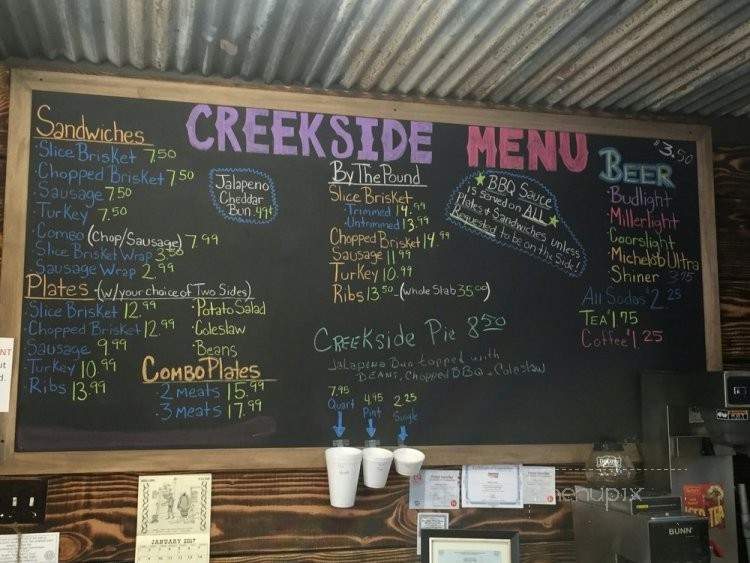 CREEKSIDE MENU
Sandwiches
·Slice Brisket 7.50
·Chopped Brisket 7.50
·Sausage 7.50
·Turkey 7.50
·Combo (Chop/Sausage) 7.99
·Slice Brisket Wrap 3.50
·Sausage Wrap 2.99
Jalapeno
Cheddar
Bun .49¢
Plates -(w/your choice of Two Sides)
·Slice Brisket 12.99
·Chopped Brisket 12.99
·Sausage 9.99
·Turkey 10.99
·Ribs 13.99
·Potato Salad
·Coleslaw
·Beans
Combo Plates
·2 meats 15.99
·3 meats 17.99
By The Pound
Slice Brisket
·Trimmed 14.99
·Untrimmed 13.99
Chopped Brisket 14.99
Sausage 11.99
Turkey 10.99
Ribs 13.50 -(Whole Slab 35.00)
BBQ Sauce
is served on ALL
Plates & Sandwiches unless
Requested to be on the Side!
Creekside Pie 8.50
Jalapeno Bun topped with
Beans, Chopped BBQ & Coleslaw
7.95
Quart
4.95
Pint
2.25
Single
$3.50
Beer
·Budlight
·Millerlight
·Coorslight
·Michelob Ultra
Shiner 3.75
All Sodas 2.25
Tea 1.75
Coffee 1.25
JANUARY 2017
BUNN
menupix
ICED TEA